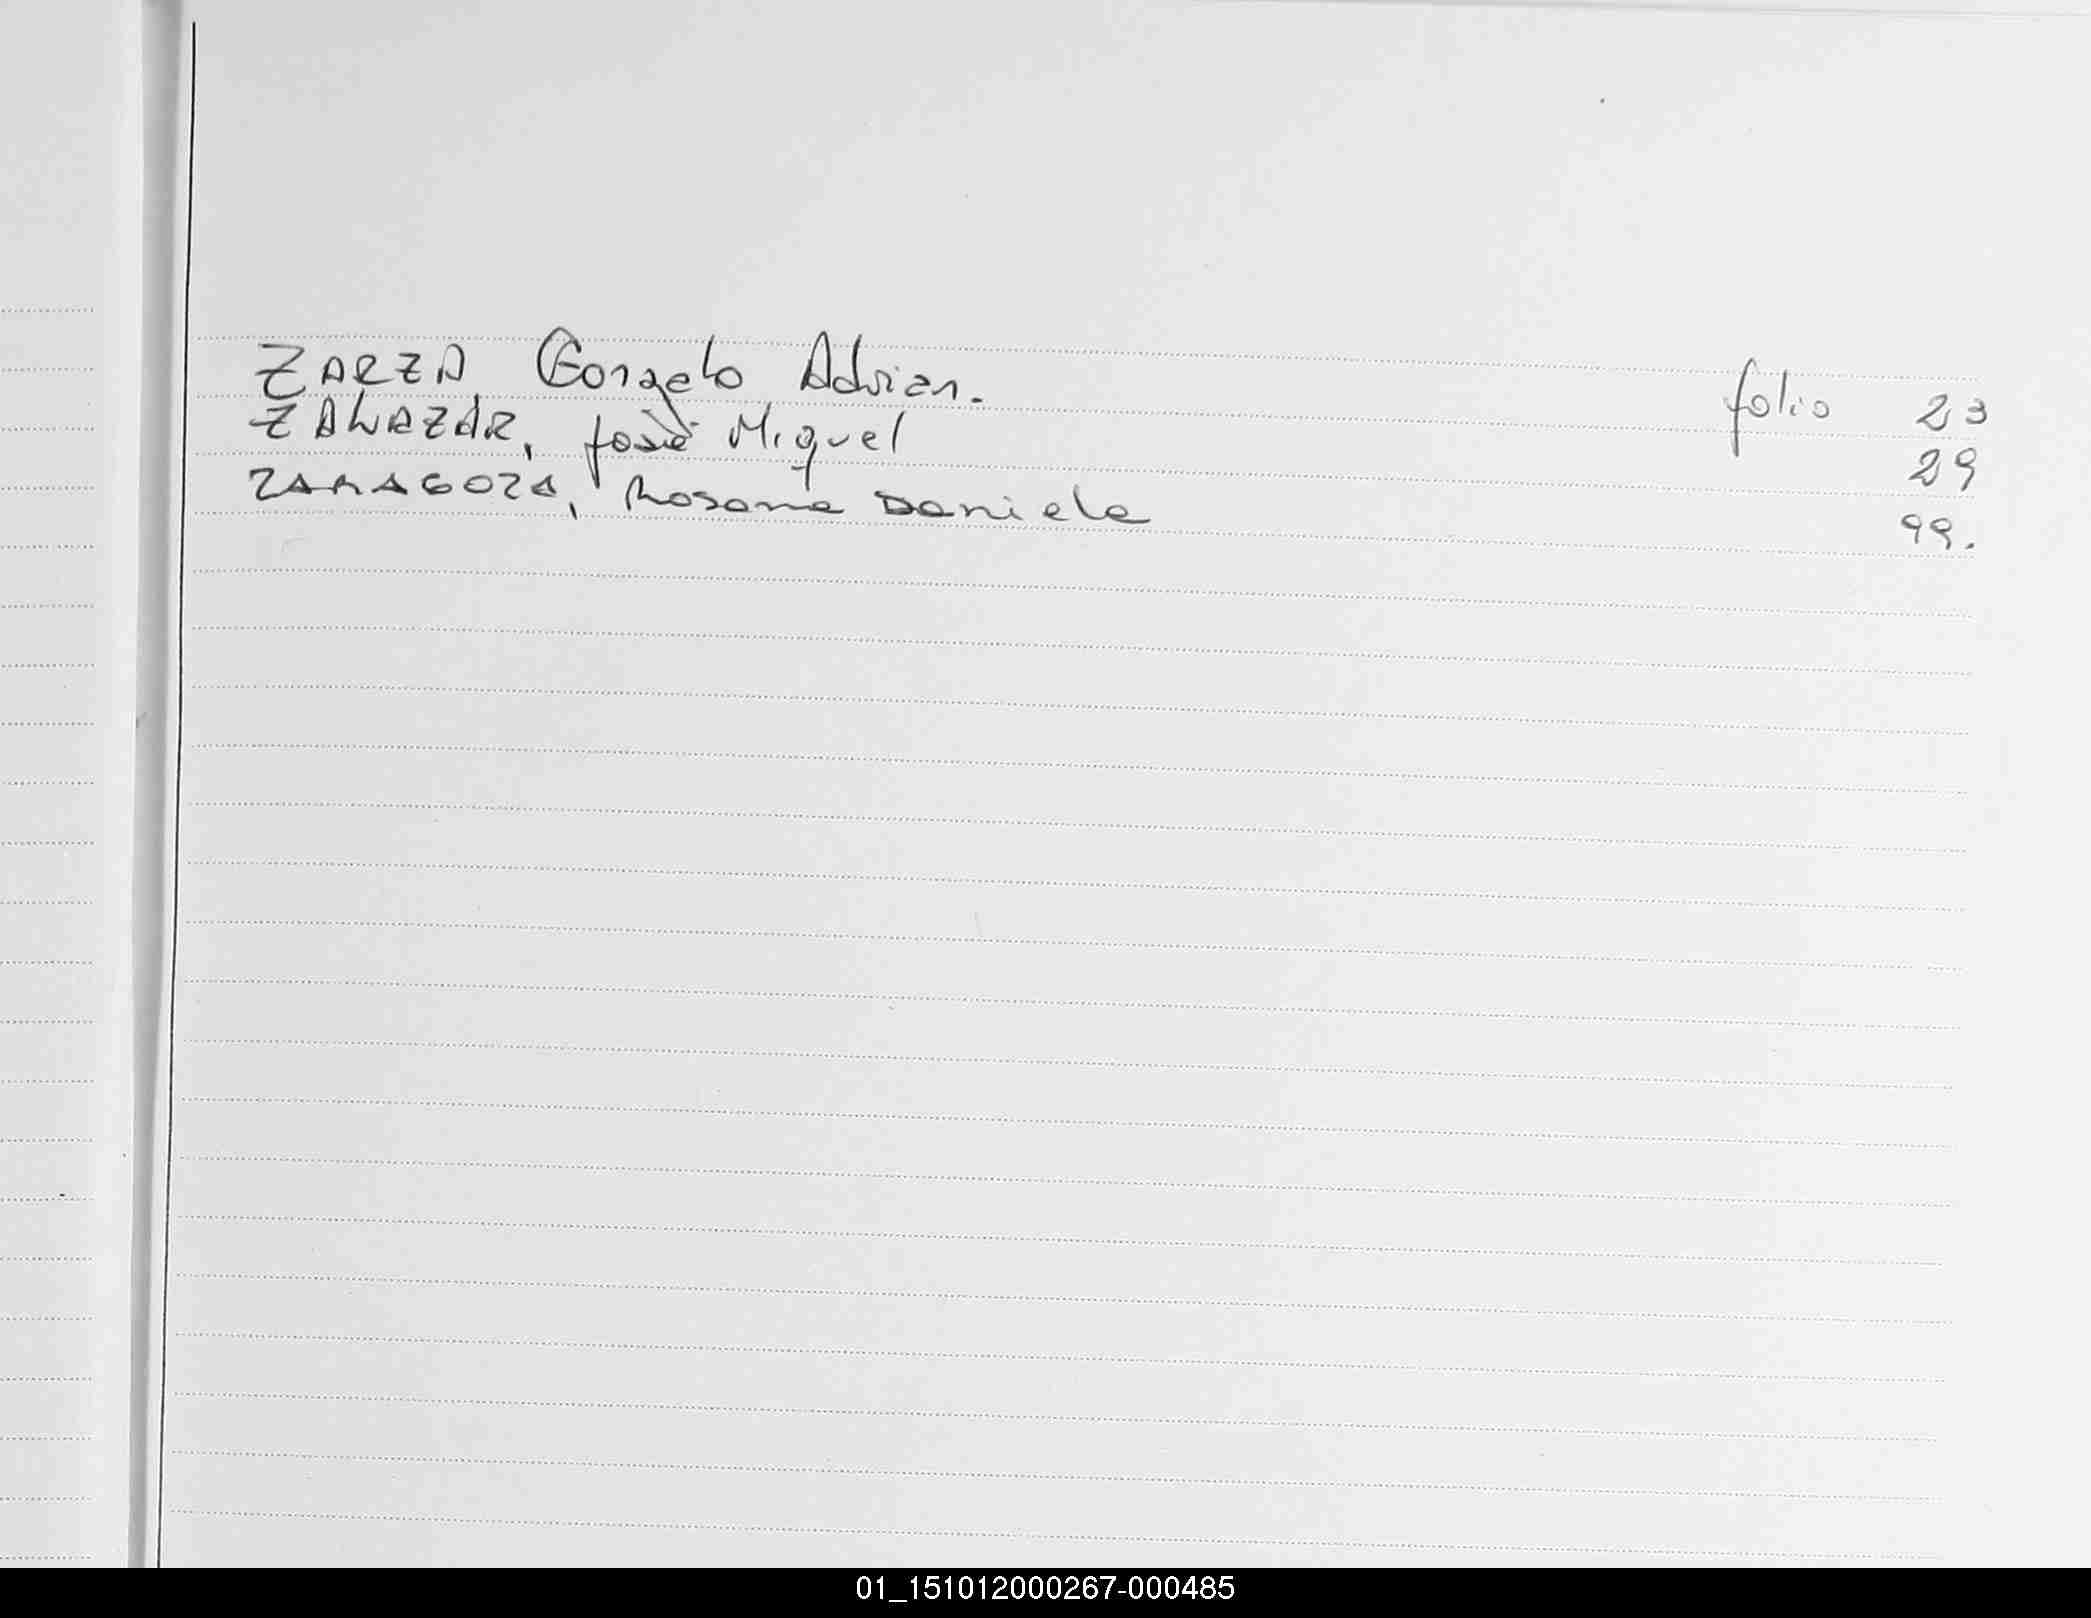 ZARZA Gonzalo Adrian. folio 23
ZALAZAR, José Miguel 29
ZARAGOZA, Rosana Daniela 99.
01_151012000267-000485